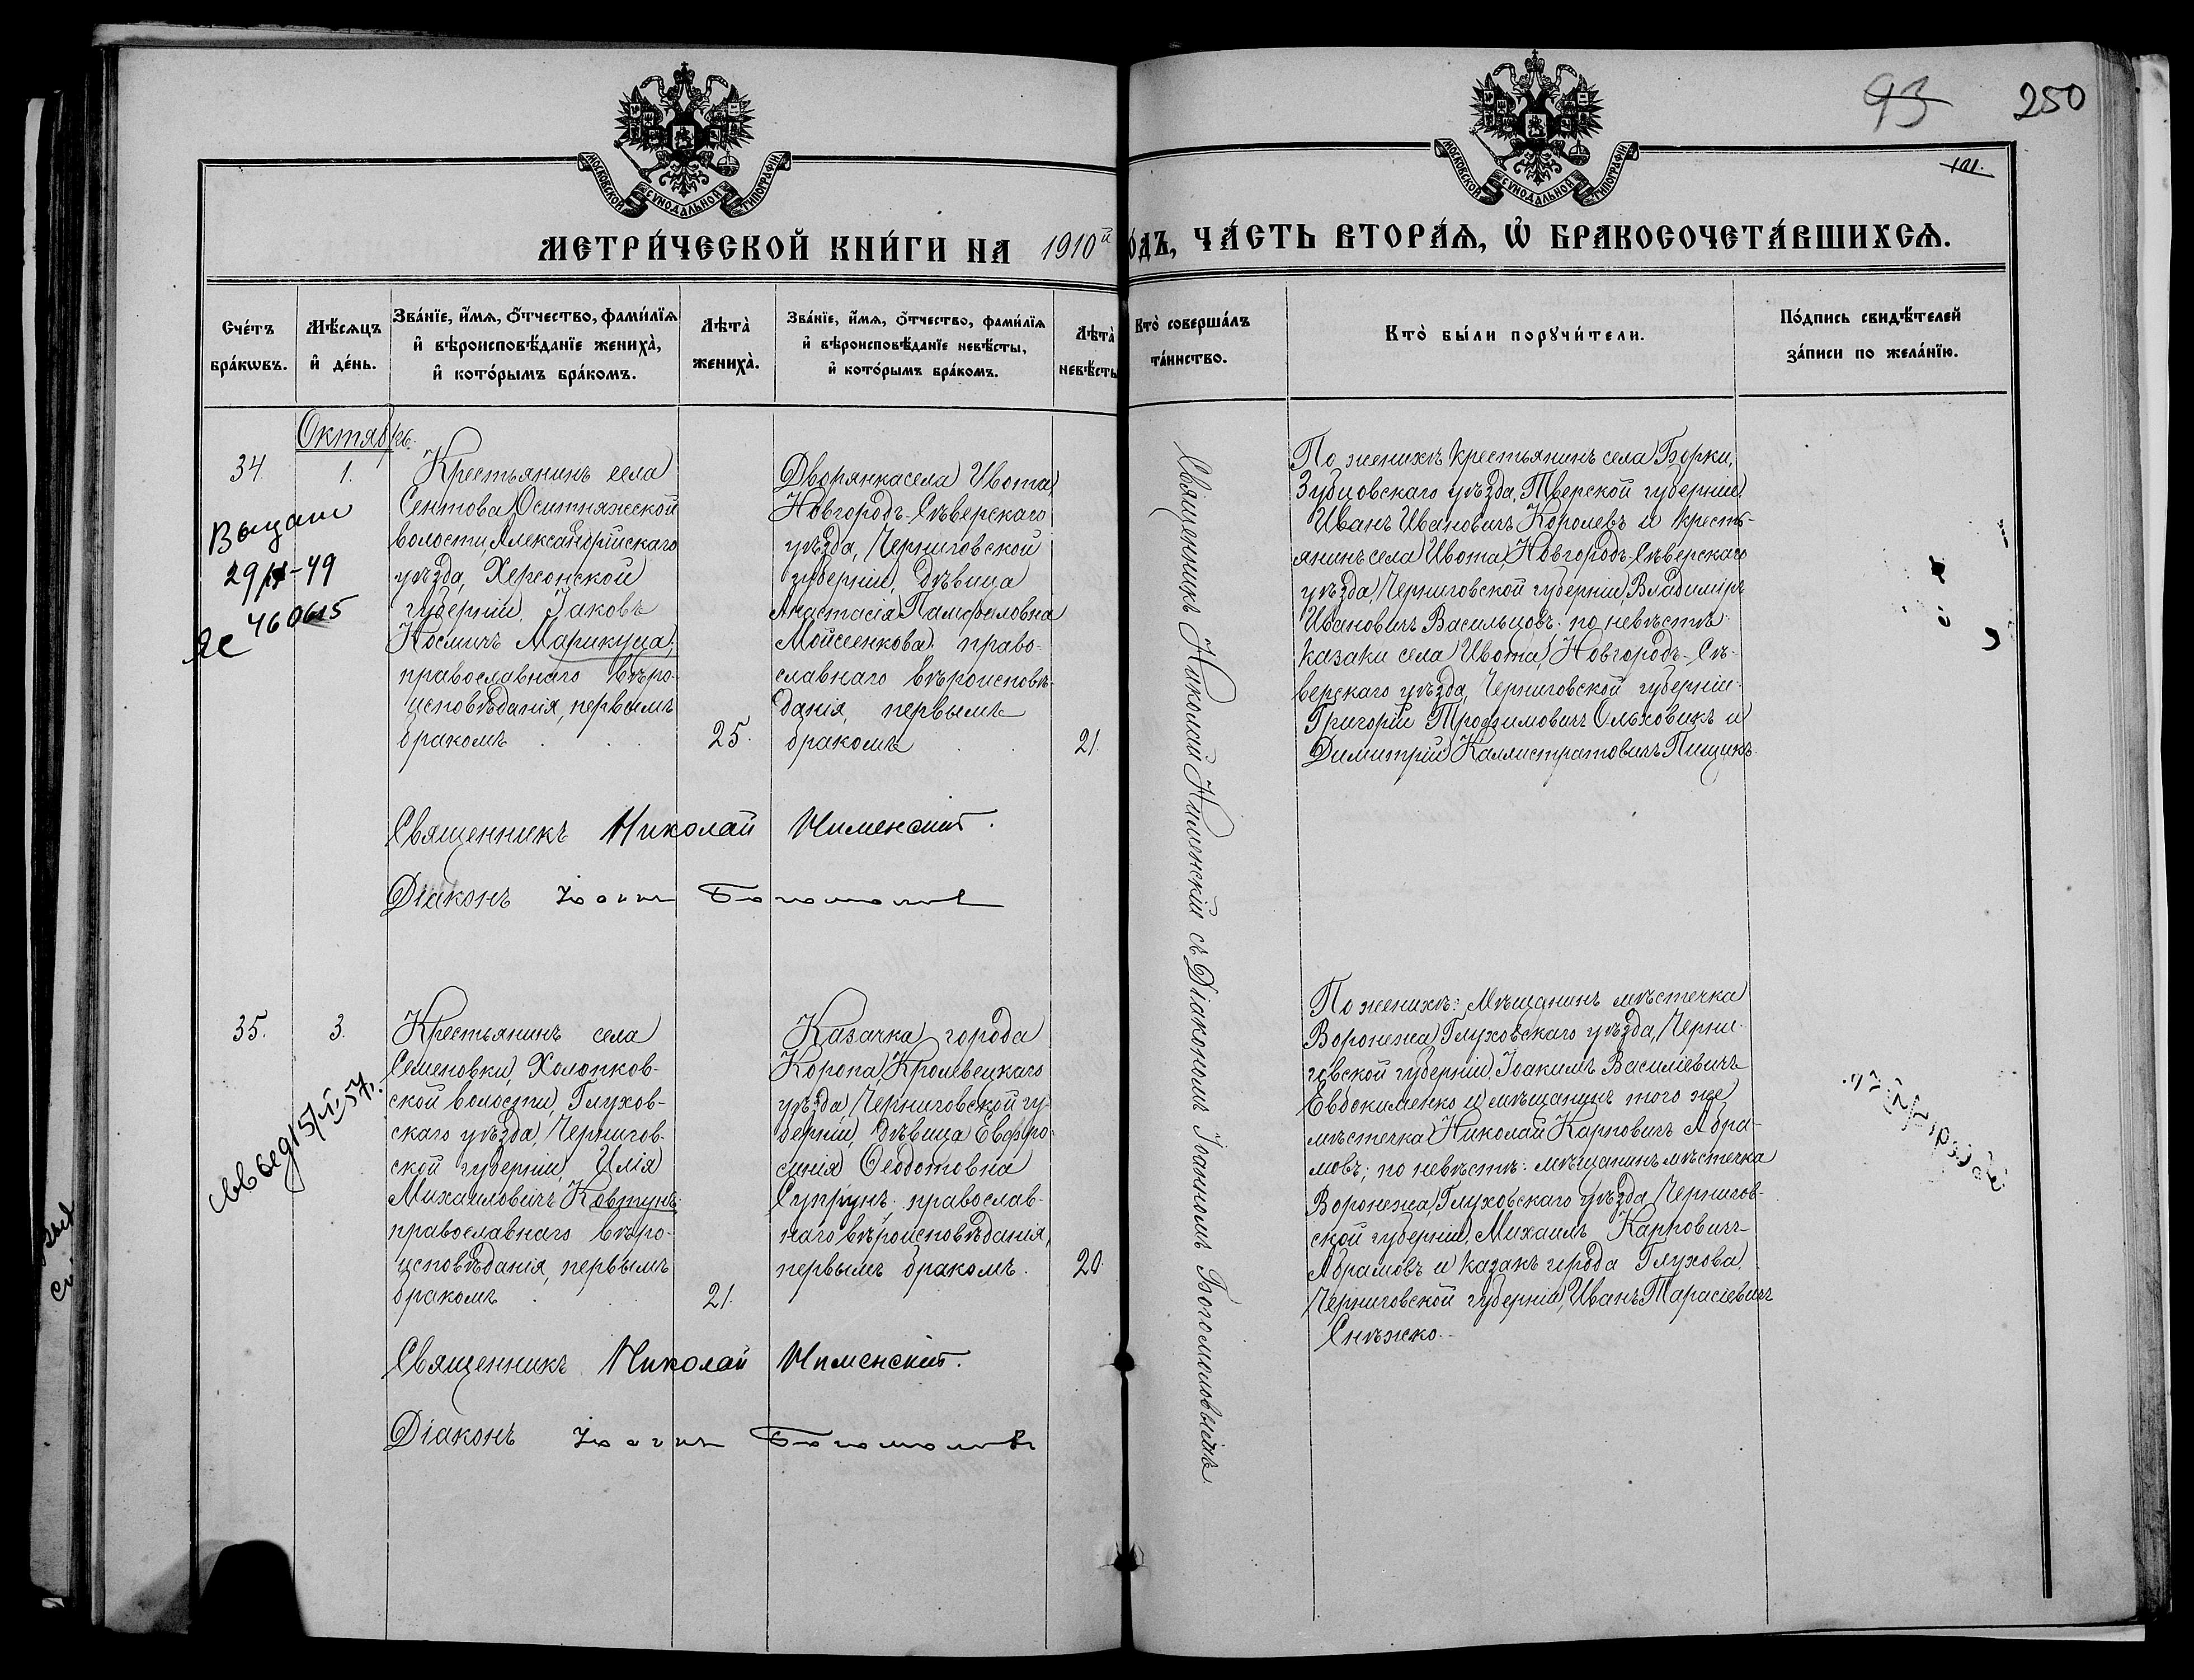 93
250
101.
МОСКОВСКОЙ СУНОДАЛЬНОЙ ТИПОГРАФІИ
МОСКОВСКОЙ СУНОДАЛЬНОЙ ТИПОГРАФІИ
МЕТРИ́ЧЕСКОЙ КНИ́ГИ НА 1910й
О́ДЪ, ЧА́СТЬ ВТОРА́Ѧ, Ѡ҆ БРАКОСОЧЕТА́ВШИХСѦ.
Сче́тъ бра́кѡвъ.
Мѣ́сѧцъ и҆ де́нь.
Зва́нїе, и҆́мѧ, ѻ҆́тчество, фами́лїѧ
и҆ вѣроисповѣ́данїе жениха̀,
и҆ кото́рымъ бра́комъ.
Лѣта̀ жениха̀.
Зва́нїе, и҆́мѧ, ѻ҆́тчество, фами́лїѧ
и҆ вѣроисповѣ́данїе невѣ́сты,
и҆ кото́рымъ бра́комъ.
Лѣта̀ невѣ́сты
Кто̀ соверша́лъ
та́инство.
Кто̀ бы́ли порꙋчи́тели.
По́дпись свидѣ́телей
за́писи по жела́нїю.
Октябрь.
34.
1.
Крестьянинъ села
Сентова, Оситняжской
волости, Александрійскаго
уѣзда, Херсонской
губерніи, Іаковъ
Космичъ Марикуца,
православнаго вѣро-
исповѣданія, первымъ
бракомъ
25.
Дворянка села Ивота,
Новгородъ-Сѣверскаго
уѣзда, Черниговской
губерніи, дѣвица
Анастасія Памфиловна
Мойсеенкова, право-
славнаго вѣроисповѣ-
данія, первымъ
бракомъ
21.
29/-49
460615
Священникъ Николай Нименскій с Діакономъ Іоанномъ Богомоловымъ
По женихѣ крестьянинъ села Борки,
Зубцовскаго уѣзда, Тверской губерніи,
Иванъ Ивановичъ Королевъ и кресть-
янинъ села Ивота, Новгородъ-Сѣверскаго
уѣзда, Черниговской губерніи, Владиміръ
Ивановичъ Васильцовъ: по невѣстѣ
казаки села Ивота, Новгородъ-Сѣ-
верскаго уѣзда, Черниговской губерніи:
Григорій Трофимовичъ Ольховикъ и
Димитрій Каллистратовичъ Пищикъ.
Священникъ Николай
Діаконъ Іоаннъ Богомоловъ
35.
3.
Крестьянинъ села
Семеновки, Холопков-
ской волости, Глухов-
скаго уѣзда, Чернигов-
ской губерніи, Илія
Михаиловичъ Ковтунъ
православнаго вѣро-
исповѣданія, первымъ
бракомъ
21.
Казачка города
Коропа, Кролевецкаго
уѣзда, Черниговской гу-
берніи, дѣвица Евфро-
синія Ѳеодотовна
Супрунъ, православ-
наго вѣроисповѣданія,
первымъ бракомъ.
20
По женихѣ: мѣщанинъ мѣстечка
Воронежа, Глуховскаго уѣзда, Черни-
говской губерніи, Іоакимъ Василіевичъ
Евдокименко и мѣщанинъ того же
мѣстечка Николай Карповичъ Абра-
мовъ; по невѣстѣ: мѣщанинъ мѣстечка
Воронежа, Глуховскаго уѣзда, Чернигов-
ской губерніи, Михаилъ Карповичъ
Абрамовъ и казакъ города Глухова,
Черниговской губерніи, Иванъ Тарасіевичъ
Снѣжко.
Священникъ Николай
Діаконъ Іоаннъ Богомоловъ